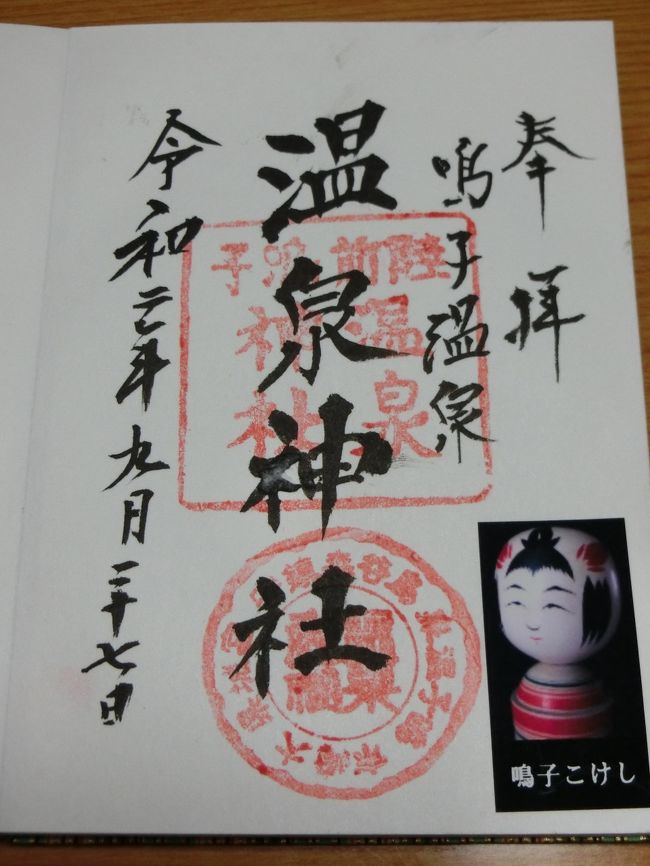 奉拝
鳴子温泉
温泉神社
令和二年九月二十七日
陸前鳴子
温泉
神社
鳴子こけし